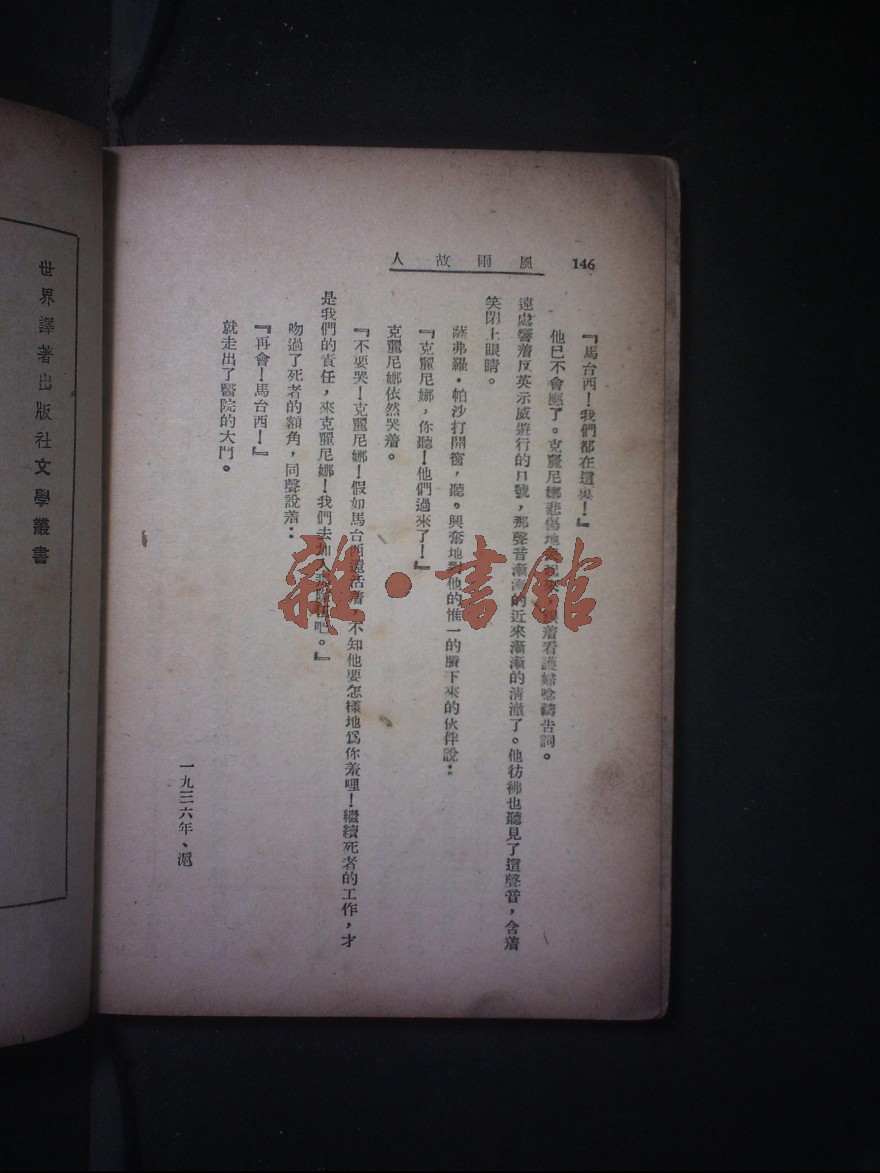 146
風雨故人
『馬台西！我們都在這裏！』
他已不會應了。克麗尼娜悲傷地 着看護婦唸禱告詞。
遠處響着反英示威遊行的口號，那聲音漸漸的近來漸漸的清澈了。他彷彿也聽見了這聲音，含着
笑閉上眼睛。
薩弗羅·帕沙打開窗，聽。興奮地對他的惟一的賸下來的伙伴說：
『克麗尼娜，你聽！他們過來了！』
克麗尼娜依然哭着。
『不要哭！克麗尼娜！假如馬台西還活着，不知他要怎樣地爲你羞哩！繼續死者的工作，才
是我們的責任，來克麗尼娜！我們去加入 吧。』
吻過了死者的額角，同聲說着：
『再會！馬台西！』
就走出了醫院的大門。
一九三六年、滬
世界譯著出版社文學叢書
雜·書館